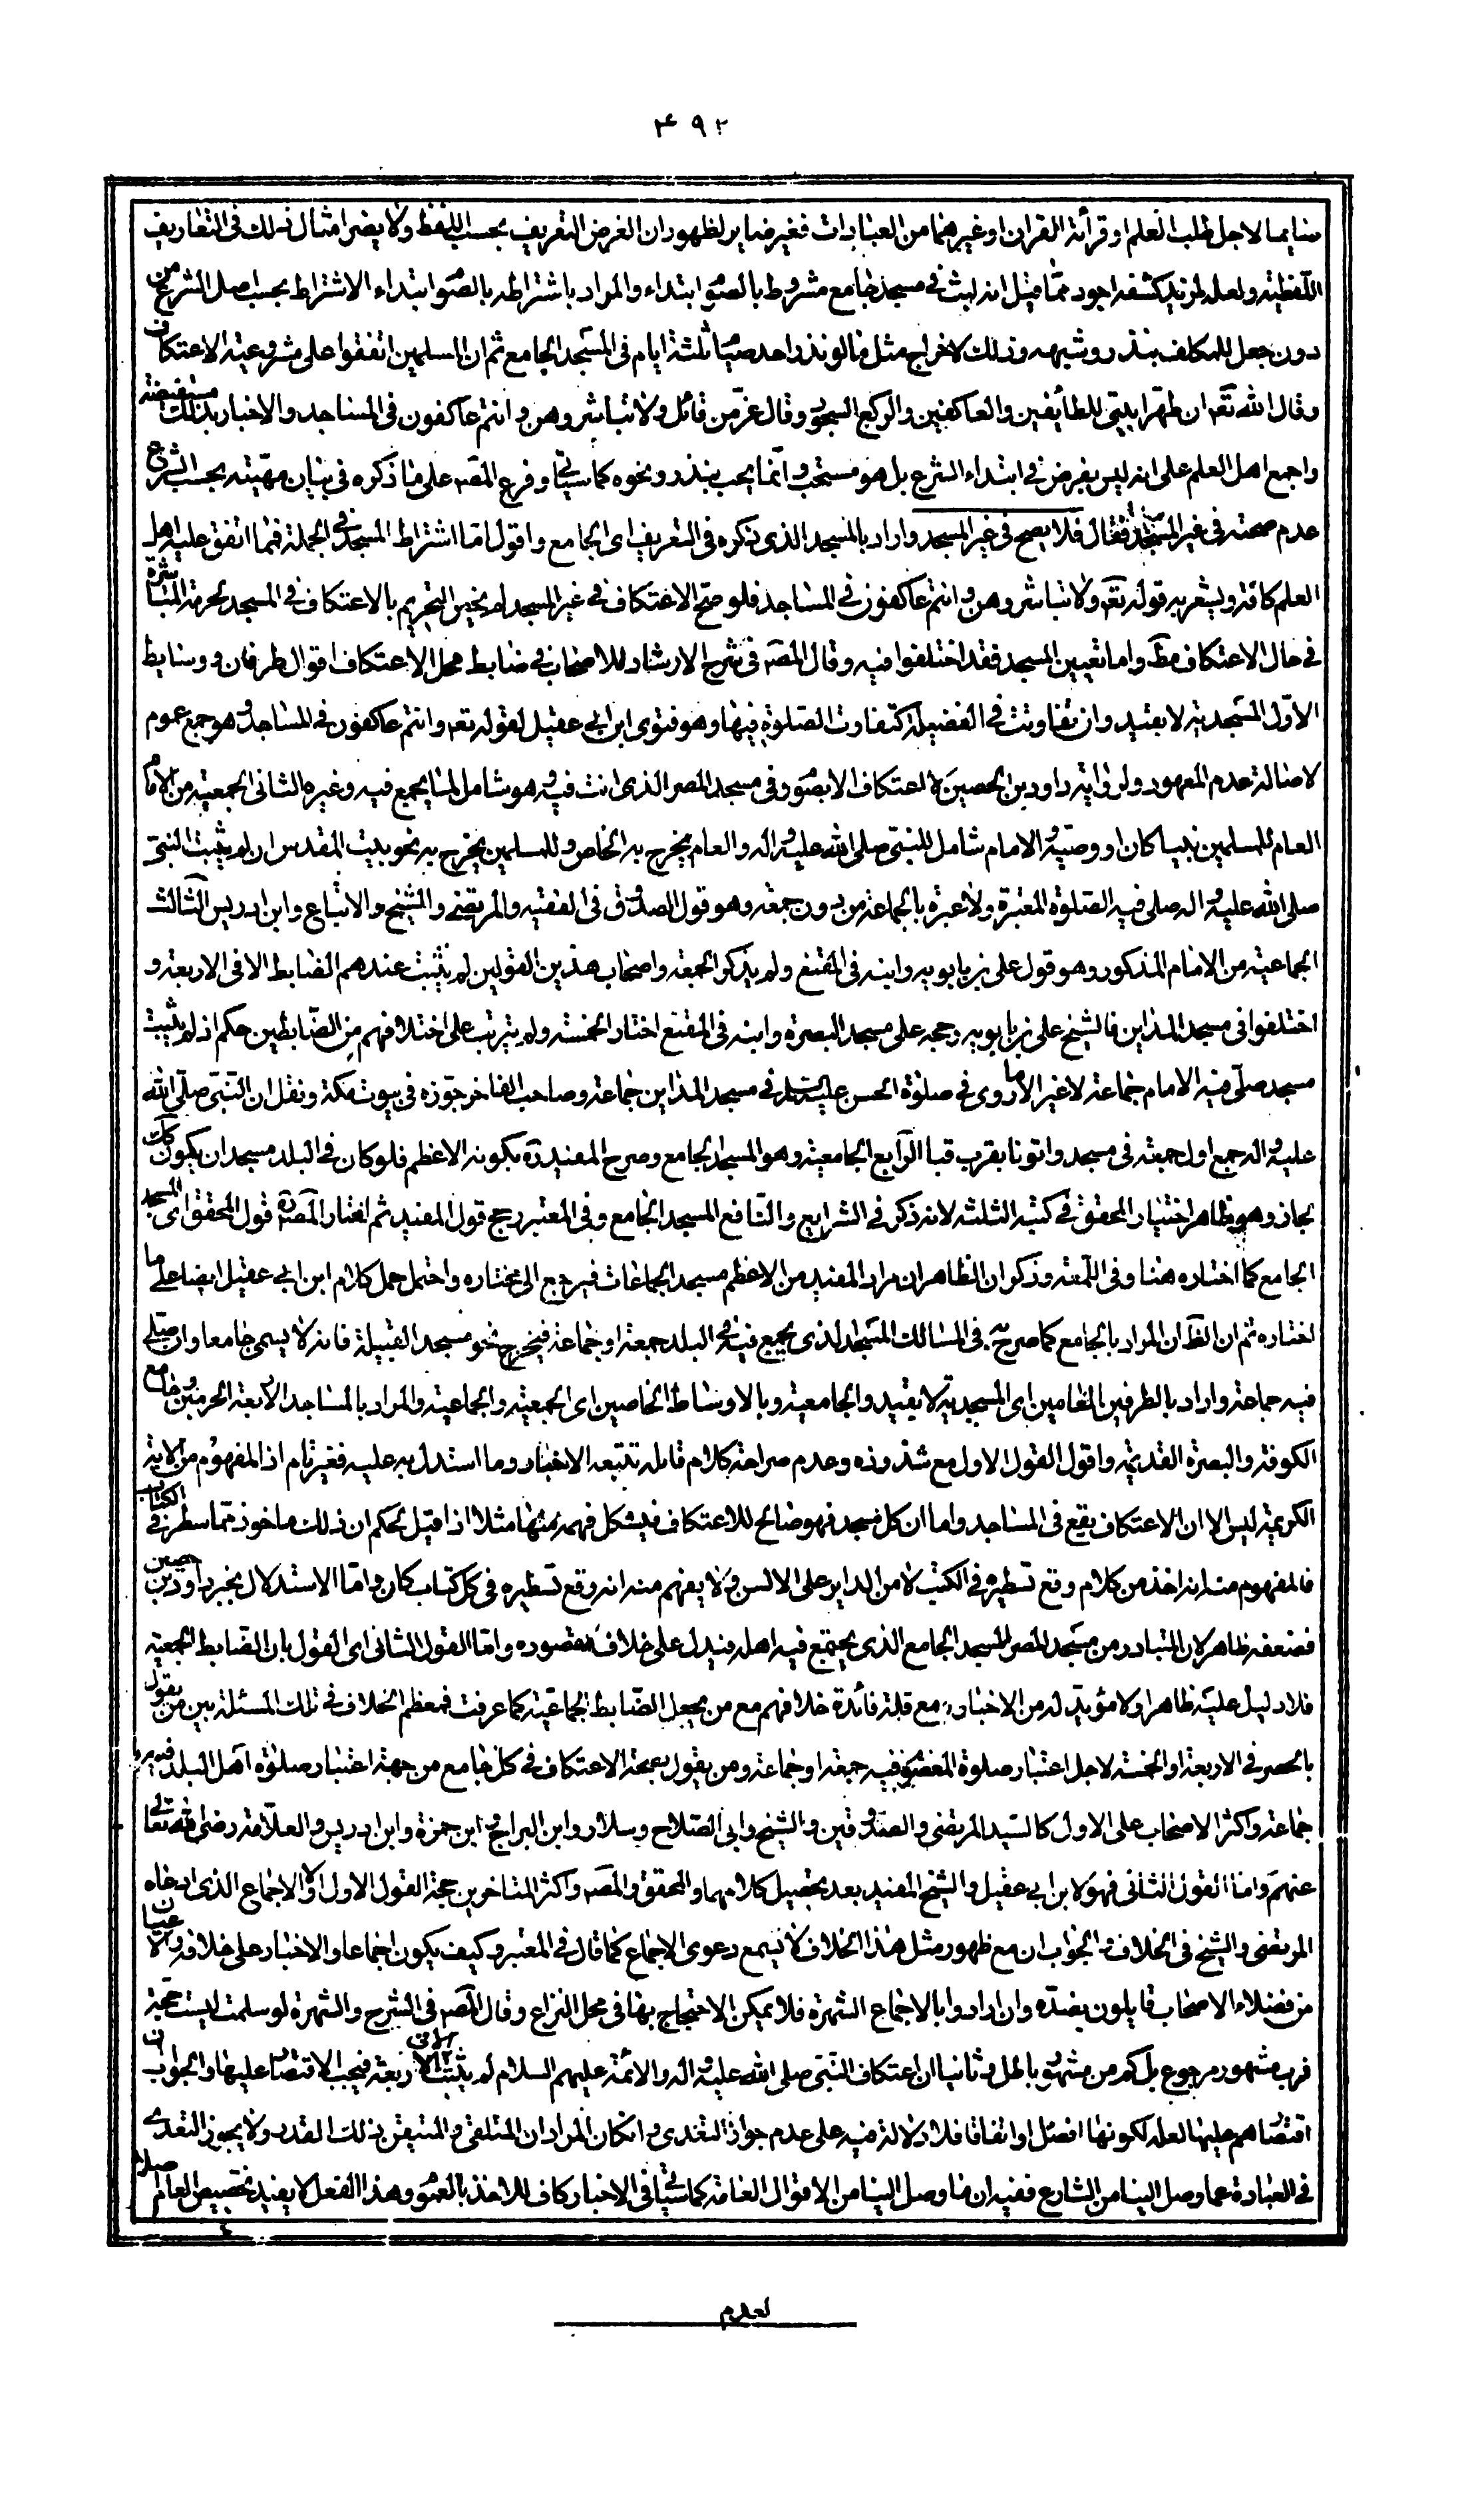 ۴۹۲
صايما لاجل طلب العلم او قرأئة القران او غيرهما من العبادات فغير ضاير لظهور ان الغرض التعريف بحسب اللفظ ولا يضر امثال ذلك فى التعاريف
اللفظية ولعله لمزيد كشفه اجود مما قيل انه لبث فى مسجد جامع مشروط بالصوم ابتداء والمراد باشتراطه بالصوم ابتداء الاشتراط بحسب اصل الشرع من
دون جعل المكلف بنذر وشبهه وذلك لاخراج مثل ما لو نذر احد صيام ثلثة ايام فى المسجد الجامع ثم ان المسلمين اتفقوا على مشروعية الاعتكاف
وقال الله تعم ان طهرا بيتى للطائفين والعاكفين والركع السجود وقال عز من قائل ولا تباشروهن وانتم عاكفون فى المساجد والاخبار بذلك مستفيضة
واجمع اهل العلم على انه ليس بفرض فى ابتداء الشرع بل هو مستحب وانما يجب بنذر ونحوه كما سيأتى وفرع المصه على ما ذكره فى بيان مهيته بحسب الشرع
عدم صحته فى غير المسجد فقال فلا يصح فى غير المسجد واراد بالمسجد الذى ذكره فى التعريف اى الجامع واقول اما اشتراط المسجد فى الجملة فمما اتفق عليه اهل
العلم كافة ويشعر به قوله تعم ولا تباشروهن وانتم عاكفون فى المساجد فلو صح الاعتكاف فى غير المسجد لم يختص التحريم بالاعتكاف فى المسجد لحرمة المباشرة
فى حال الاعتكاف مط واما تعيين المسجد فقد اختلفوا فيه وقال المصه فى شرح الارشاد للاصحاب فى ضابط محل الاعتكاف اقوال طرفان ووسايط
الاول المسجدية لا بقيد وان تفاوتت فى الفضيلة كتفاوت الصلوة فيها وهو فتوى ابن ابى عقيل لقوله تعم وانتم عاكفون فى المساجد وهو جمع عموم
لاصالة عدم المعهود ولرواية داود بن الحصين لا اعتكاف الا بصوم وفى مسجد المصر الذى انت فيه وهو شامل لما يجمع فيه وغيره الثانى الجمعية من الامام
العام للمسلمين نبيا كان او وصيه والامام شامل للنبى صلى الله عليه واله والعام يخرج به الخاص وللمسلمين يخرج به نحو بيت المقدس ان لم يثبت النبى
صلى الله عليه واله صلى فيه الصلوة المعتبرة ولا عبرة بالجماعة من دون جمعة وهو قول الصدوق فى الفقيه والمرتضى والشيخ والاتباع وابن ادريس الثالث
الجماعية من الامام المذكور وهو قول على بن بابويه وابنه فى المقنع ولم يذكر الجمعة واصحاب هذين القولين لم يثبت عندهم الضابط الا فى الاربعة و
اختلفوا فى مسجد المداين فالشيخ على بن بابويه رجحه على مسجد البصرة وابنه فى المقنع اختار الخمسة ولم يترتب على اختلافهم من الضابطين حكم اذ لم يثبت
مسجد صلى فيه الامام جماعة لا غير الا ما روى فى صلوة الحسن عليه السلم فى مسجد المداين جماعة وصاحب الفاخر جوزه فى بيوت مكة ونقل ان النبى صلى الله
عليه واله جمع اول جمعة فى مسجد واتونا بقرب قبا الرابع الجامعية وهو المسجد الجامع وصرح المفيد ره بكونه الاعظم فلو كان فى البلد مسجدان يكون كك
لجاز وهو ظاهر اختيار المحقق فى كتبه الثلثة لانه ذكر فى الشرايع والنافع المسجد الجامع وفى المعتبر رجح قول المفيد ثم اختار المصه ره قول المحقق اى المسجد
الجامع كما اختاره هنا وفى اللمعة وذكر ان الظاهر ان مراد المفيد من الاعظم مسجد الجماعات فيرجع الى مختاره واحتمل حمل كلام ابن ابى عقيل ايضا على ما
اختاره ثم ان الظ ان المراد بالجامع كما صرح به فى المسالك المسجد الذى يجمع فيه فى البلد جمعة او جماعة فيخرج نحو مسجد القبيلة فانه لا يسمى جامعا وان صلى
فيه جماعة واراد بالطرفين المقامين اى المسجدية لا بقيد والجامعية وبالاوساط الخاصين اى الجمعية والجماعية والمراد بالمساجد الاربعة الحرمين وجامع
الكوفة والبصرة القديمة واقول القول الاول مع شذوذه وعدم صراحة كلام قائله تتبعه الاخبار وما استدل به عليه فغير تام اذ المفهوم من الاية
الكريمة ليس الا ان الاعتكاف يقع فى المساجد واما ان كل مسجد فهو صالح للاعتكاف فيشكل فهمه منها مثلا اذا قيل لحكم ان ذلك ماخوذ مما سطر فى الكتاب
فالمفهوم منه انه اخذ من كلام وقع تسطيره فى الكتب لا من الداير على الالسن ولا يفهم منه انه وقع تسطيره فى كل كتاب كان واما الاستدلال بخبر داود بن حصين
فضعفه ظاهر لان المتبادر من مسجد المصر المسجد الجامع الذى يجتمع فيه اهله فيدل على خلاف مقصوده واما القول الثانى اى القول بان الضابط الجمعية
فلا دليل عليه ظاهرا ولا مؤيد له من الاخبار مع قلة فائدة خلافهم مع من يجعل الضابط الجماعية كما عرفت فمعظم الخلاف فى تلك المسئلة بين من يقول
بالحصر فى الاربعة او الخمسة لاجل اعتبار صلوة المعصوم فيه جمعة او جماعة ومن يقول بصحة الاعتكاف فى كل جامع من جهة اعتبار صلوة اهل البلد فيه
جماعة واكثر الاصحاب على الاول كالسيد المرتضى والصدوقين والشيخ وابى الصلاح وسلار وابن البراج وابن حمزة وابن ادريس والعلامة رضى الله تعالى
عنهم واما القول الثانى فهو لابن ابى عقيل والشيخ المفيد بعد تحصيل كلامهما والمحقق والمصه واكثر المتاخرين حجة القول الاول اولا الاجماع الذى ادعاه
المرتضى والشيخ فى الخلاف والجواب ان مع ظهور مثل هذا الخلاف لا يسمع دعوى الاجماع كما قال فى المعتبر وكيف يكون اجماعا والاخبار على خلافه والاعيان
من فضلاء الاصحاب قايلون بضده وان ارادوا بالاجماع الشهرة فلا يمكن الاحتجاج بها فى محل النزاع وقال المصه فى الشرح والشهرة لو سلمت ليست حجة
فرب مشهور مرجوح بل كم من مشهور باطل وثانيا ان اعتكاف النبى صلى الله عليه واله والائمة عليهم السلام لم يثبت الا فى الاربعة فيجب الاقتصار عليها والجواب ان
اقتصارهم عليها لعله لكونها افضل او اتفاقا فلا دلالة فيه على عدم جواز التعدى وان كان المراد ان المتلقى والمتيقن ذلك القدر ولا يجوز التعدى
فى العبادة عما وصل الينا من الشارع ففيه ان ما وصل الينا من الاقوال العامة كما سيأتى فى الاخبار كاف للاخذ بالعموم وهذا الفعل لا يفيد تخصيص العام اصلا
لعدم